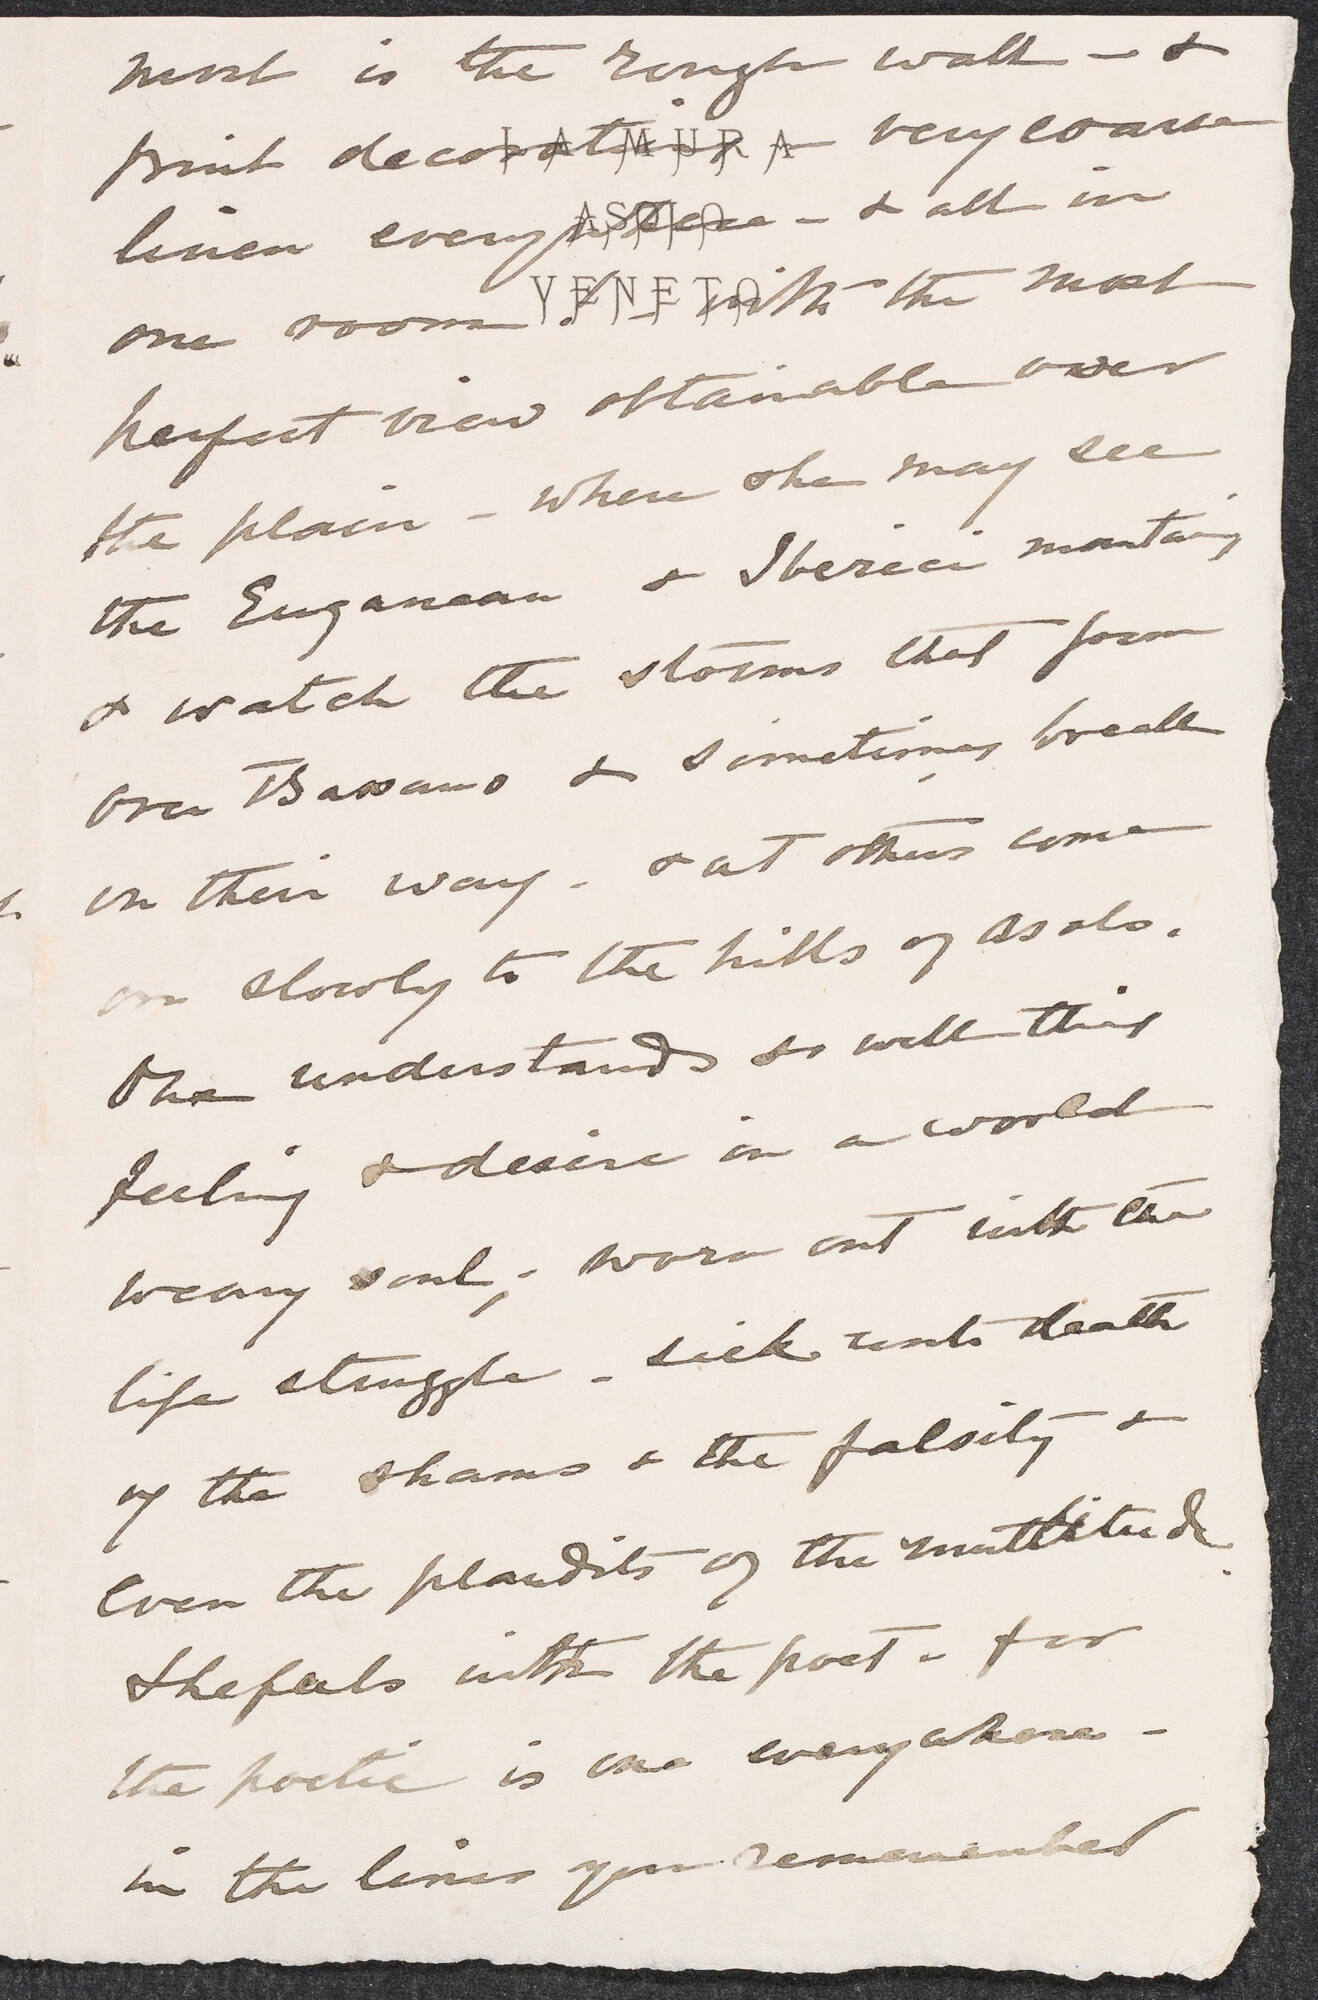 most is the rough wall - &
print decorations - very coarse
LA MURA
linen everywhere - & all in
ASOLO
one room! - with the most
VENETO
perfect view obtainable over
the plain - where she may see
the Euganean & Iberici mountains
& watch the storms that form
over Bassano & sometimes break
on their way - & at others come
on slowly to the hills of Asolo.
One understands so well this
feeling & desire in a world
weary soul, - worn out with the
life struggle - sick unto death
of the shams & the falsity &
even the plaudits of the multitude.
She feels with the poet - for
the poetic is one everywhere -
in the lines you remember